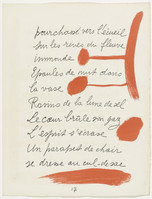 pourchand vers l'écueil
sur les rives du fleuve
immonde
Épaules de nuit dans
la vase
Rosino de la lune de
Le cœur brûle son gaz
L'esprit s'écrase
Un parapet de chair
se dresse au cul-de-sac
17